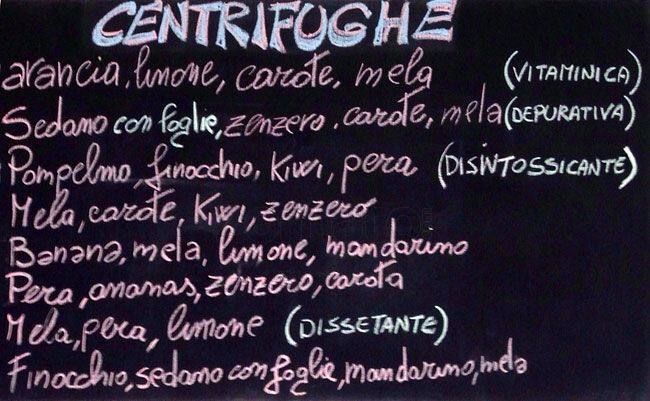 CENTRIFUGHE
arancia, limone, carote, mela (VITAMINICA)
Sedano con foglie, zenzero, carote, mela (DEPURATIVA)
Pompelmo, finocchio, Kiwi, pera (DISINTOSSICANTE)
Mela, carote, Kiwi, zenzero
Banana, mela, limone, mandarino
Pera, ananas, zenzero, carota
Mela, pera, limone (DISSETANTE)
Finocchio, sedano con foglie, mandarino, mela